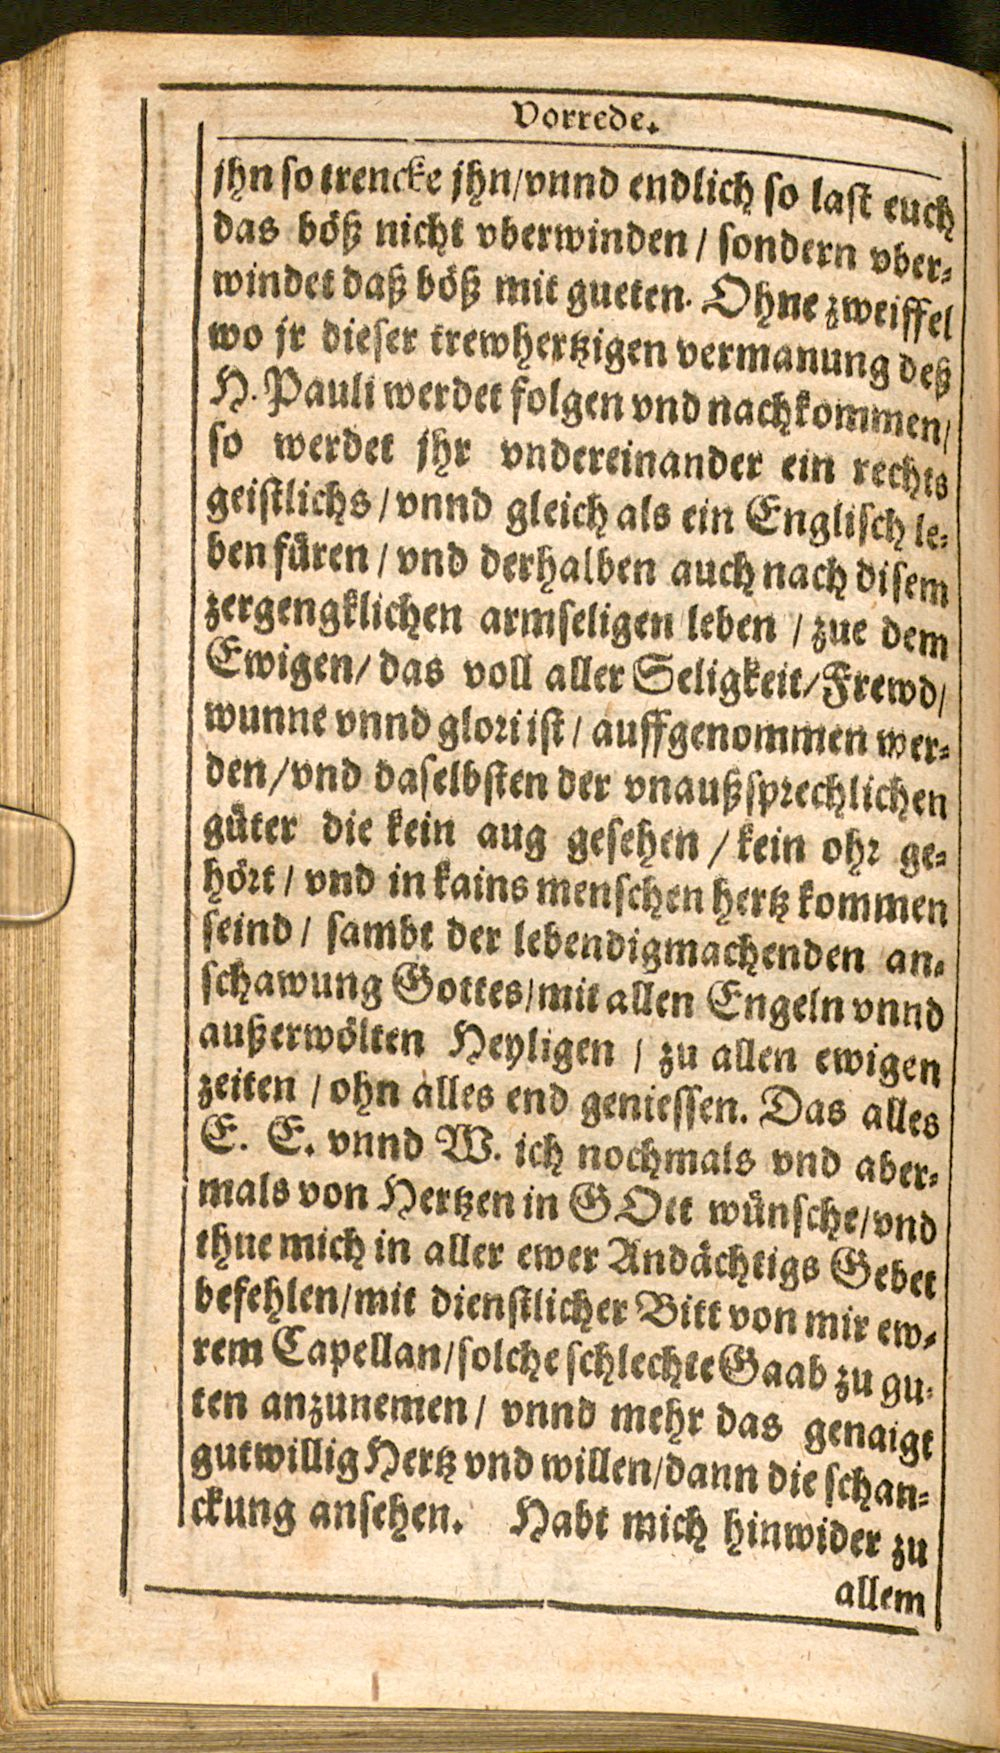 Vorrede.
jhn so trencke jhn/vnnd endlich so last euch
das böß nicht vberwinden / sondern vber-
windet daß böß mit gueten. Ohne zweiffel
wo jr dieser trewhertzigen vermanung deß
H. Pauli werdet folgen vnd nachkommen/
so werdet jhr vndereinander ein rechts
geistlichs / vnnd gleich als ein Englisch le-
ben füren / vnd derhalben auch nach disem
zergengklichen armseligen leben / zue dem
Ewigen/ das voll aller Seligkeit/Frewd/
wunne vnnd glori ist / auffgenommen wer-
den/vnd daselbsten der vnaußsprechlichen
güter die kein aug gesehen / kein ohr ge-
hört / vnd in kains menschen hertz kommen
seind / sambt der lebendigmachenden an-
schawung Gottes/mit allen Engeln vnnd
außerwölten Heyligen / zu allen ewigen
zeiten / ohn alles end geniessen. Das alles
E. E. vnnd W. ich nochmals vnd aber-
mals von Hertzen in GOtt wünsche/vnd
thue mich in aller ewer Andächtigs Gebet
befehlen/mit dienstlicher Bitt von mir ew-
rem Capellan/solche schlechte Gaab zu gu-
ten anzunemen / vnnd mehr das genaigt
gutwillig Hertz vnd willen/dann die schan-
ckung ansehen. Habt mich hinwider zu
allem